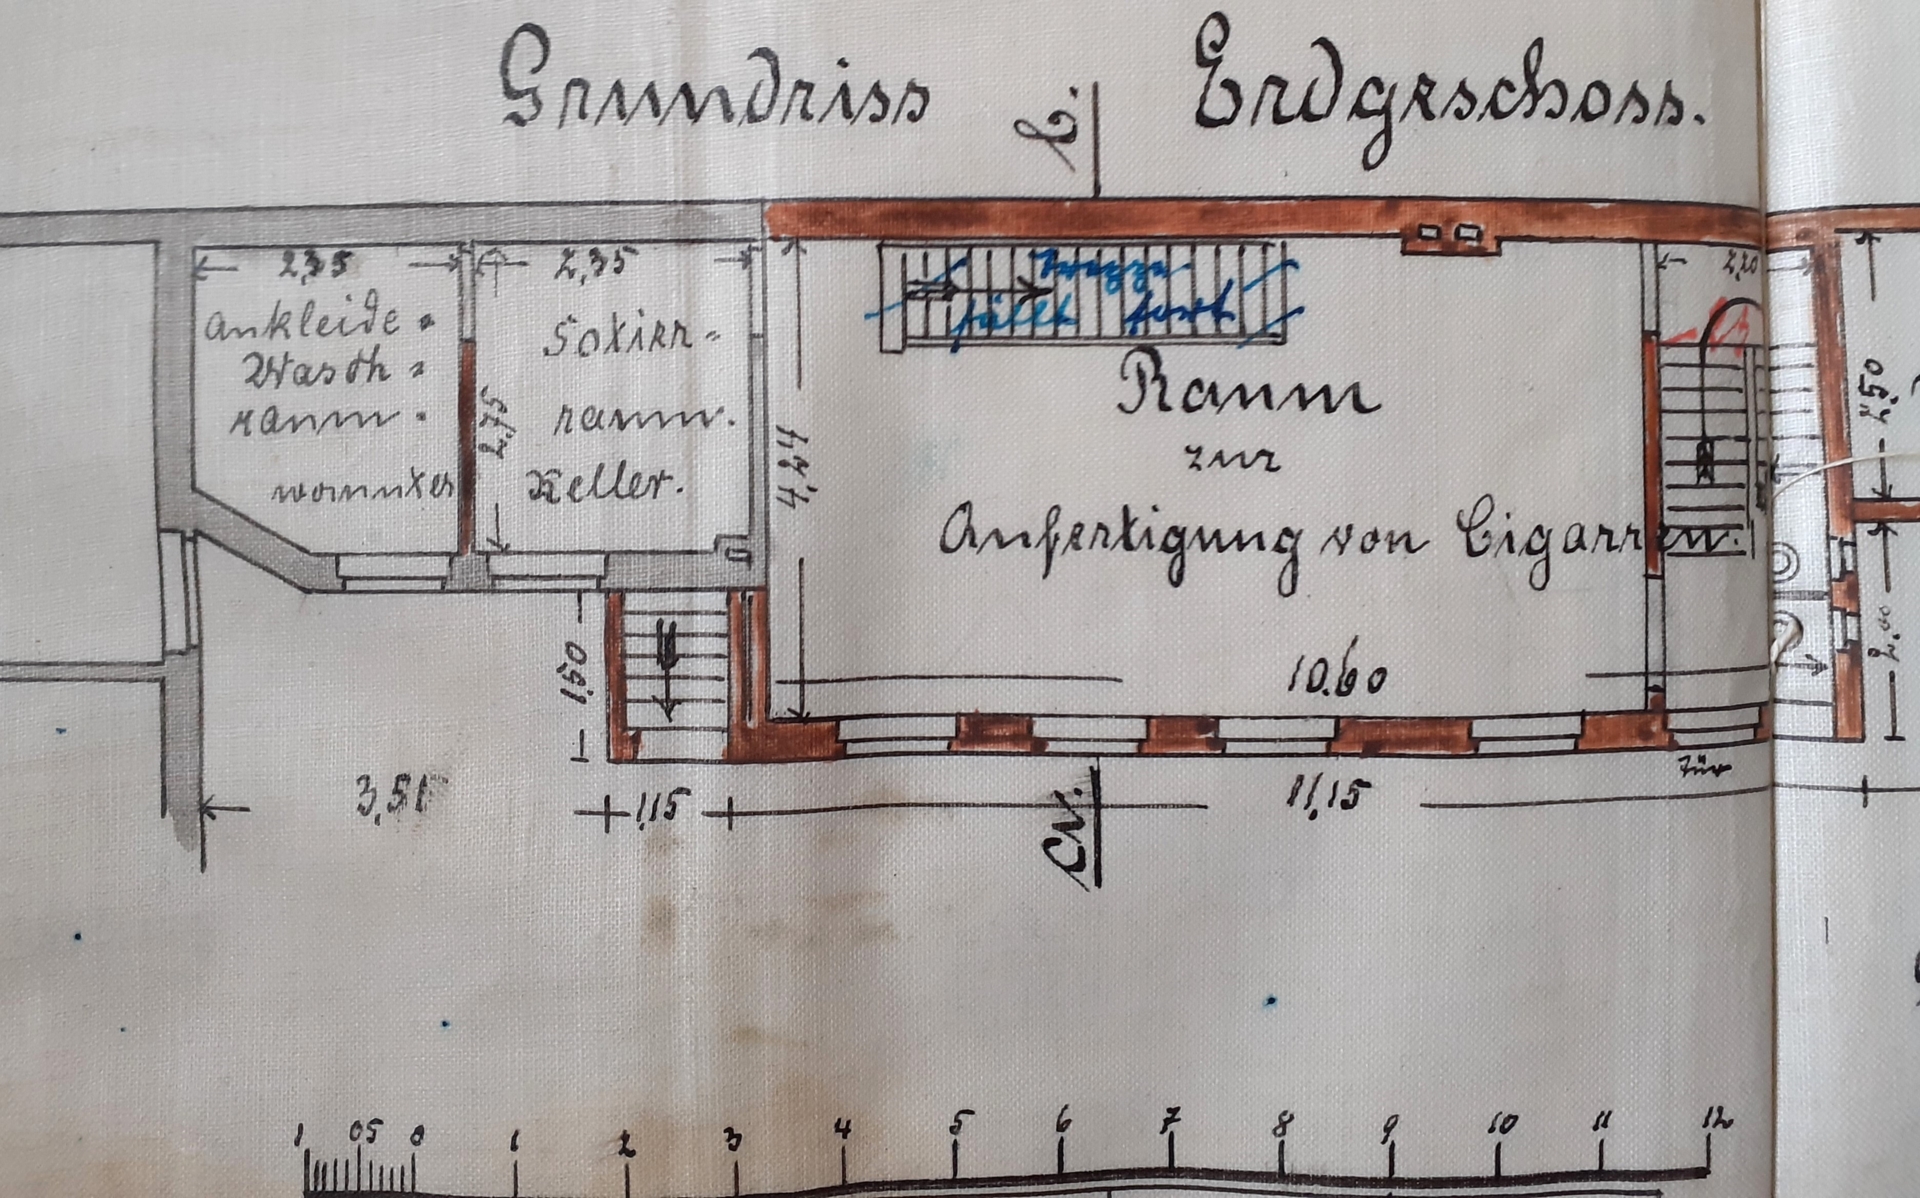 Grundriss Erdgeschoss.
2,35
2,35
2,20
Ankleide=
Wasch=
raum.
Sotier=
raum.
Keller.
2.75
4.24
Treppe
fällt fort
Raum
zur
Anfertigung von Cigarren.
2,50
2,00
1,50
10.60
Tür
3,51
1,15
11,15
1 05 0 1 2 3 4 5 6 7 8 9 10 11 12